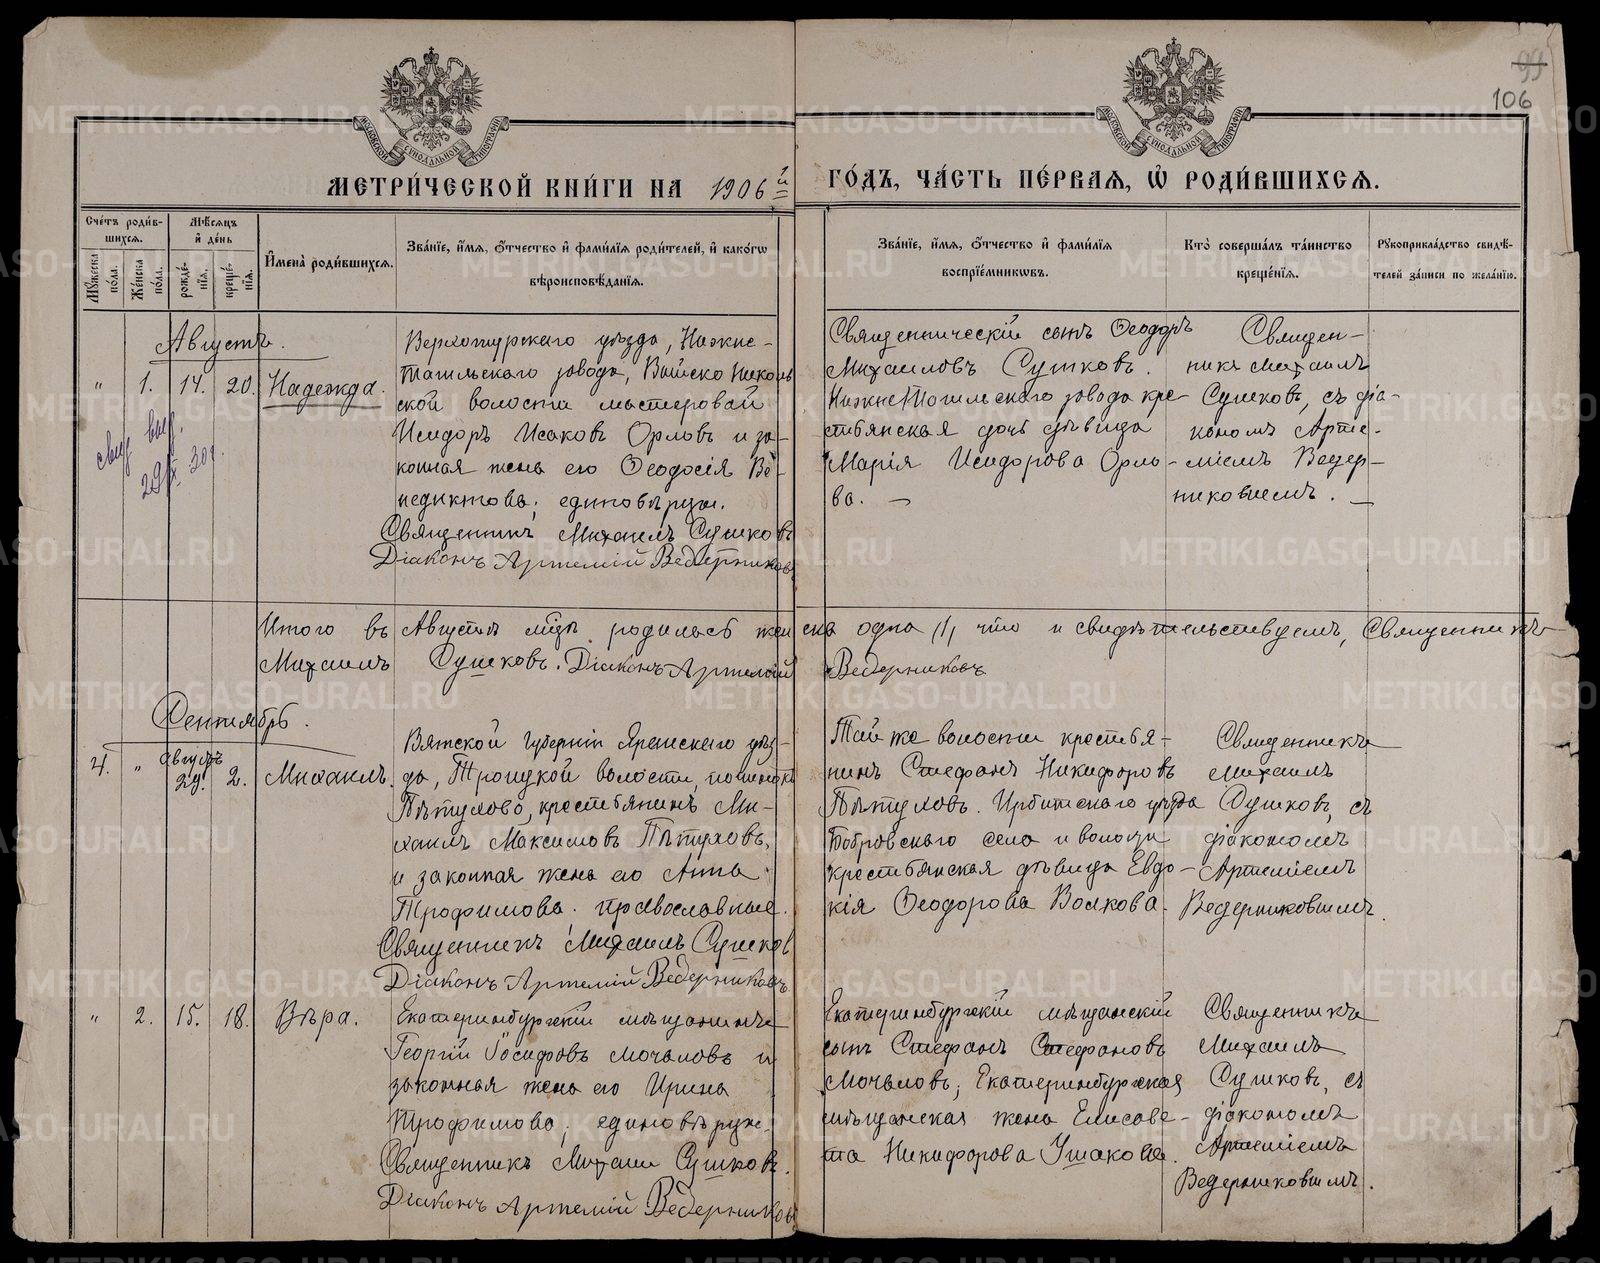 99
106
МОСКОВСКОЙ СѴНОДАЛЬНОЙ ТИПОГРАФІИ
МОСКОВСКОЙ СѴНОДАЛЬНОЙ ТИПОГРАФІИ
МЕТРИ́ЧЕСКОЙ КНИ́ГИ НА 1906й ГО́ДЪ, ЧА́СТЬ ПЕ́РВАѦ, Ѡ҆ РОДИ́ВШИХСѦ.
Сче́тъ роди́вшихсѧ.
Мꙋ́жеска по́ла.
Же́нска по́ла.
Мѣ́сѧцъ и҆ де́нь
рожде́нїѧ.
креще́нїѧ.
И҆мена̀ роди́вшихсѧ.
Зва́нїе, и҆́мѧ, ѻ҆́тчество и҆ фами́лїѧ роди́телей, и҆ како́гѡ
вѣроисповѣ́данїѧ.
Зва́нїе, и҆́мѧ, ѻ҆́тчество и҆ фами́лїѧ
воспрїе́мникѡвъ.
Кто̀ соверша́лъ та́инство
креще́нїѧ.
Рꙋкоприкла́дство свидѣ́-
телей за́писи по жела́нїю.
Августъ.
" 1. 14. 20. Надежда.
свид. выд.
29/IX 30г.
Верхотурскаго уѣзда, Нижне-
Тагильскаго завода, Выйско Николь
ской волости мастеровой
Исидоръ Исаковъ Орловъ и за-
конная жена его Ѳеодосія Ве-
недиктова; единовѣрцы.
Священникъ Михаилъ Сушковъ
Діаконъ Артемій Ведерниковъ
Священническій сынъ Ѳеодоръ
Михаиловъ Сушковъ.
НижнеТагильскаго завода кре-
стьянская дочь дѣвица
Марія Исидорова Орло-
ва. —
Священ-
никъ Михаилъ
Сушковъ, съ діа-
кономъ Арте-
міемъ Ведер-
никовымъ. —
Итого въ Августѣ мѣцѣ родилась женска одна /1/, что и свидѣтельствуемъ, Священникъ
Михаилъ Сушковъ. Діаконъ Артемій Ведерниковъ
Сентябрь.
4. " августъ 29. 2. Михаилъ.
Вятской губерніи Яранскаго уѣз-
да, Троицкой волости, починокъ
Пѣтухово, крестьянинъ Ми-
хаилъ Максимовъ Пѣтуховъ,
и законная жена его Анна
Трофимова. православные.
Священникъ Михаилъ Сушков
Діаконъ Артемій Ведерниковъ
Той же волости крестья-
нинъ Стефанъ Никифоровъ
Пѣтуховъ. Ирбитскаго уѣзда
Бобровскаго села и волости
крестьянская дѣвица Евдо-
кія Ѳеодорова Волкова.
Священникъ
Михаилъ
Сушковъ, съ
діакономъ
Артеміемъ
Ведерниковымъ.
" 2. 15. 18. Вѣра.
Екатеринбургскій мѣщанинъ
Георгій Іосифовъ Мочаловъ и
законная жена его Ирина
Трофимова; единовѣрцы.
Священникъ Михаилъ Сушковъ.
Діаконъ Артемій Ведерниковъ
Екатеринбургскій мѣщанскій
сынъ Стефанъ Стефановъ
Мочаловъ; Екатеринбургская
мѣщанская жена Елисаве-
та Никифорова Ушакова.
Священникъ
Михаилъ
Сушковъ, съ
діакономъ
Артеміемъ
Ведерниковымъ.
METRIKI.GASO-URAL.RU